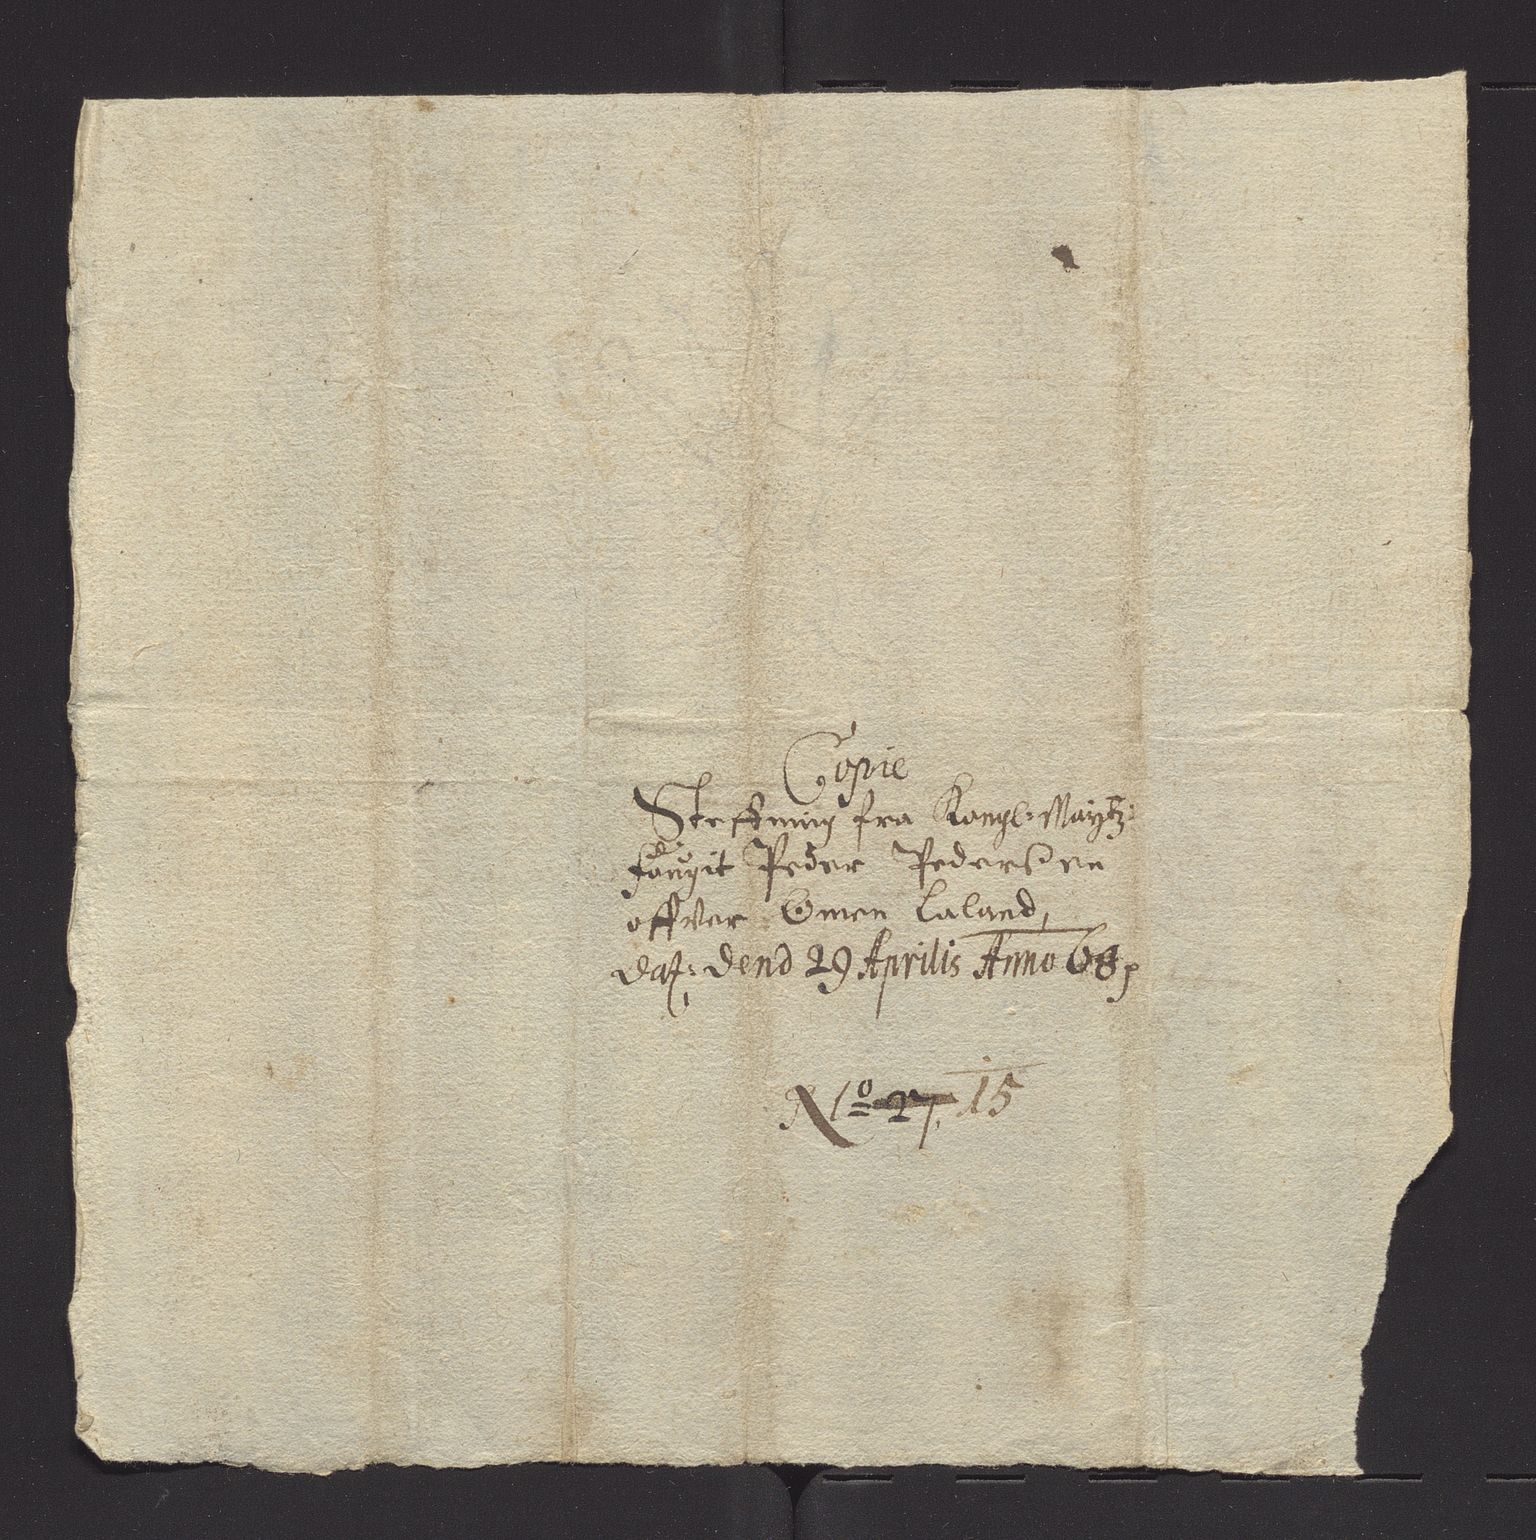 Copie
Steffning fra Kongl: Maytz:
fougit Peder Pedersen
offver Omen Laland,
dat: dend 29 Aprilis Anno 68
No 27, 15